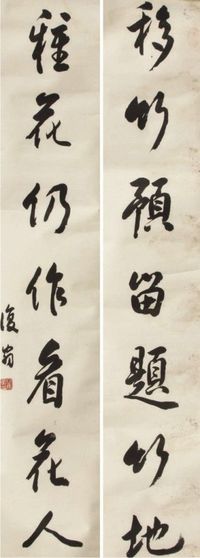 移竹預留題竹地
種花仍作看花人
復翁